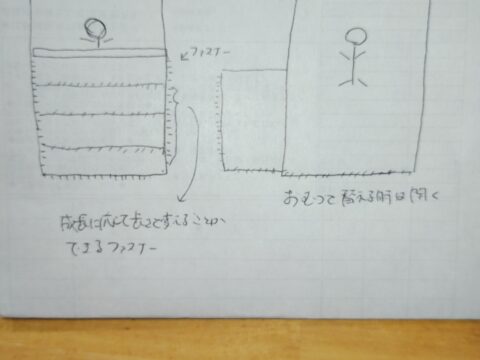 ファスナー
おむつを替える時は開く
成長に応じて長さをかえることが
できるファスナー